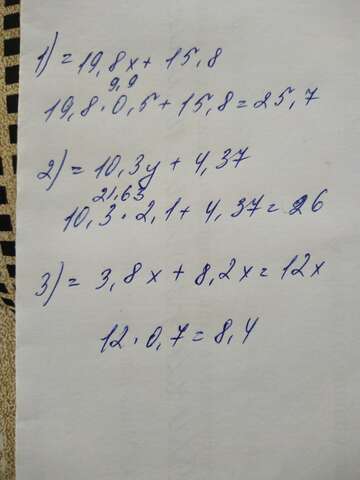 1) = 19,8x + 15,8
9,9
19,8 · 0,5 + 15,8 = 25,7
2) = 10,3y + 4,37
21,63
10,3 · 2,1 + 4,37 = 26
3) = 3,8x + 8,2x = 12x
12 · 0,7 = 8,4